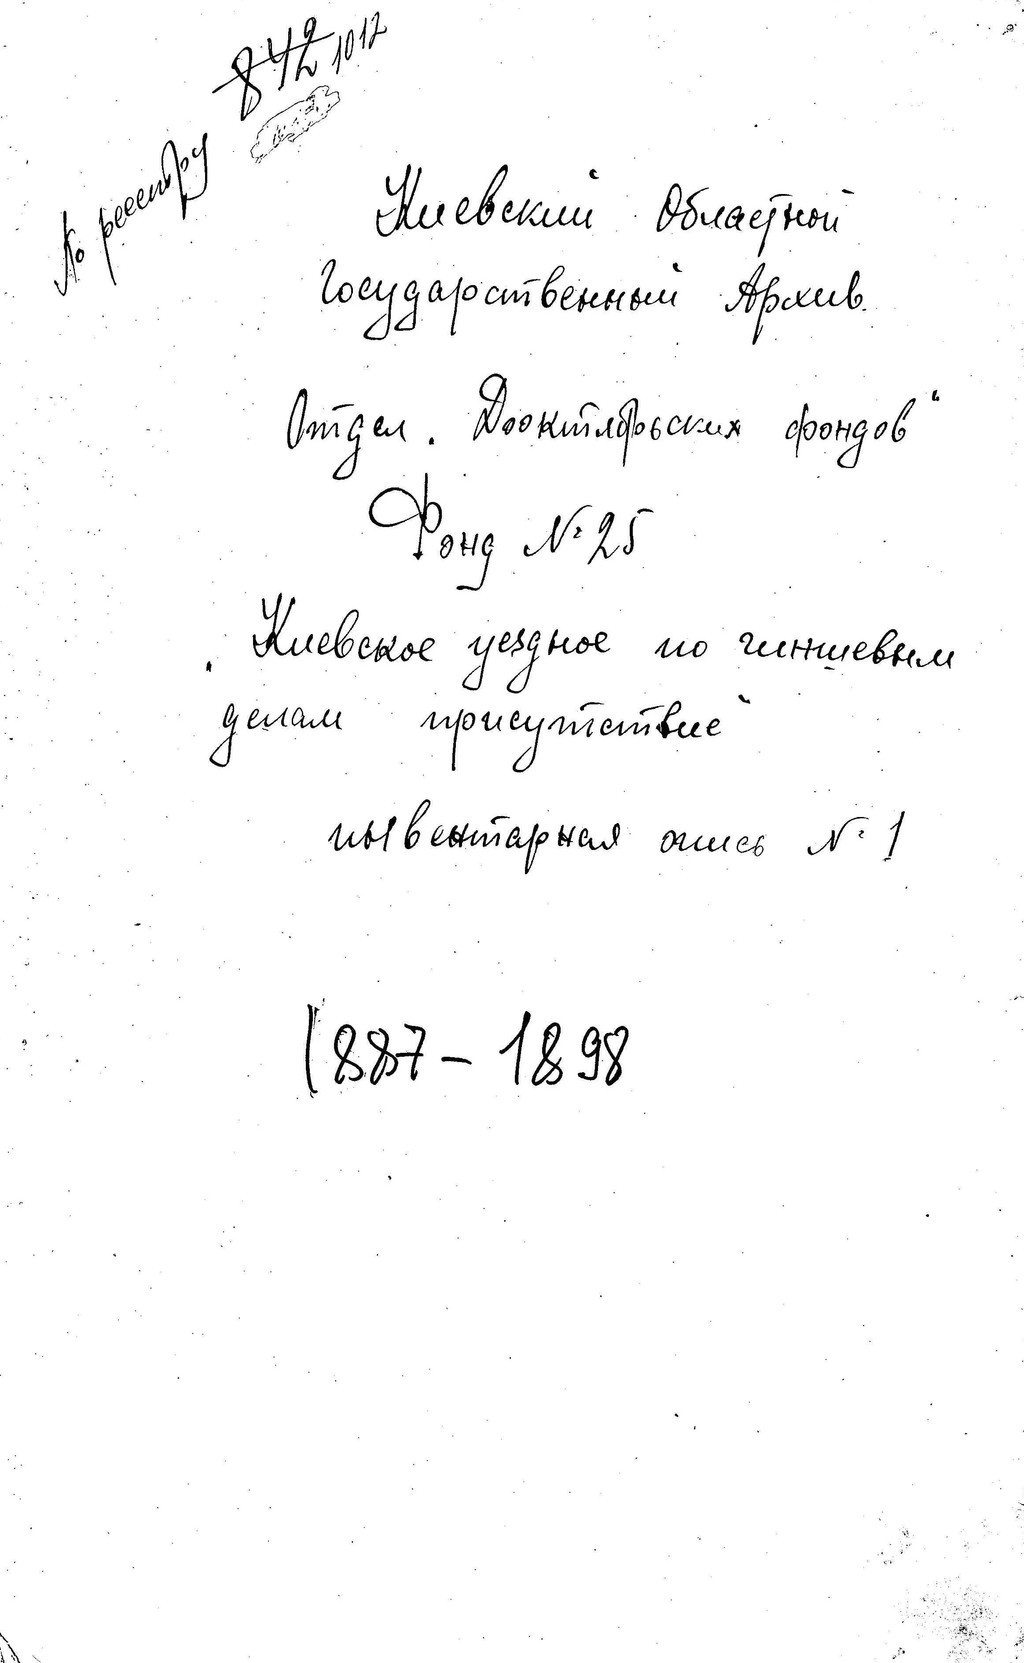 По реестру 842 1012
Киевский Областной
Государственный Архив.
Отдел „Дооктябрьских фондов“
Фонд № 25
„Киевское уездное по чиншевым
делам присутствие“
инвентарная опись № 1
1887 – 1898